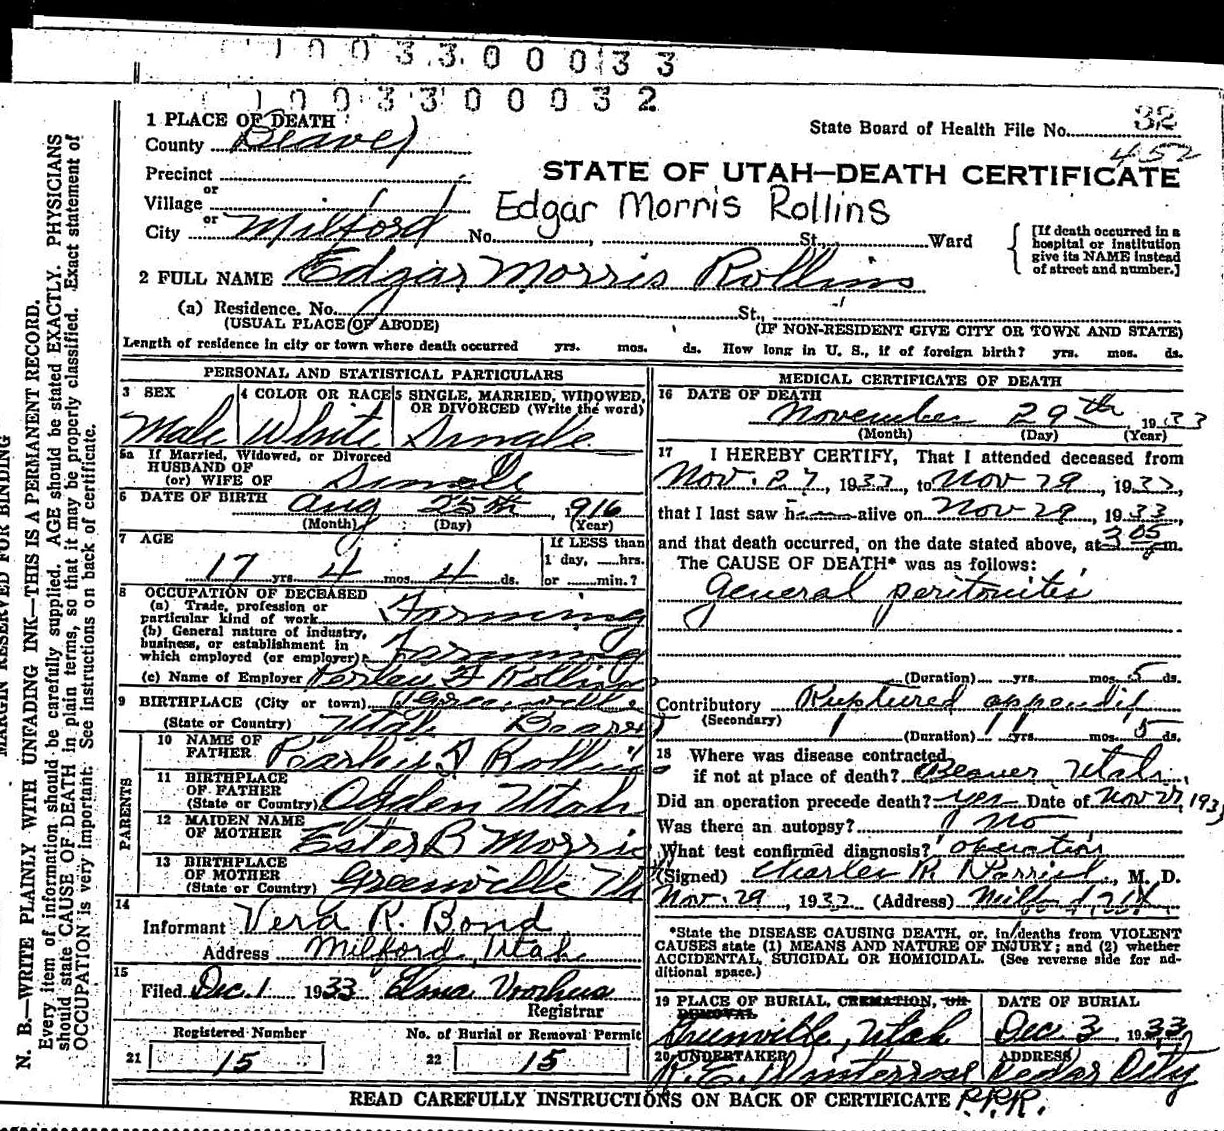 0 0 3 3 0 0 0 3 3
0 0 3 3 0 0 0 3 2
MARGIN RESERVED FOR BINDING
N. B.—WRITE PLAINLY WITH UNFADING INK—THIS IS A PERMANENT RECORD.
Every item of information should be carefully supplied. AGE should be stated EXACTLY. PHYSICIANS
should state CAUSE OF DEATH in plain terms, so that it may be properly classified. Exact statement of
OCCUPATION is very important. See instructions on back of certificate.
State Board of Health File No. 32
452
1 PLACE OF DEATH
County Beaver
STATE OF UTAH—DEATH CERTIFICATE
Precinct
or
Village
Edgar Morris Rollins
or
City Milford No. , St., Ward
[If death occurred in a hospital or institution give its NAME instead of street and number.]
2 FULL NAME Edgar Morris Rollins
(a) Residence. No. St.,
(USUAL PLACE OF ABODE) (IF NON-RESIDENT GIVE CITY OR TOWN AND STATE)
Length of residence in city or town where death occurred yrs. mos. ds. How long in U. S., if of foreign birth? yrs. mos. ds.
PERSONAL AND STATISTICAL PARTICULARS
3 SEX 4 COLOR OR RACE 5 SINGLE, MARRIED, WIDOWED, OR DIVORCED (Write the word)
Male White Single
5a If Married, Widowed, or Divorced
HUSBAND OF
(or) WIFE OF Single
6 DATE OF BIRTH Aug 25th, 1916
(Month) (Day) (Year)
7 AGE If LESS than
1 day, hrs.
17 yrs. 4 mos. 4 ds. or min.?
8 OCCUPATION OF DECEASED
(a) Trade, profession or
particular kind of work Farming
(b) General nature of industry,
business, or establishment in
which employed (or employer) Farming
(c) Name of Employer Rollins
9 BIRTHPLACE (City or town) Greenville
(State or Country) Utah Beaver
PARENTS
10 NAME OF
FATHER Rollins
11 BIRTHPLACE
OF FATHER
(State or Country) Ogden Utah
12 MAIDEN NAME
OF MOTHER Ester B Morris
13 BIRTHPLACE
OF MOTHER
(State or Country) Greenville Ut
14
Informant Vera R. Bond
Address Milford, Utah
15
Filed Dec. 1 1933 Elma
Registrar
Registered Number No. of Burial or Removal Permit
21 15 22 15
MEDICAL CERTIFICATE OF DEATH
16 DATE OF DEATH
November 29th, 1933
(Month) (Day) (Year)
17 I HEREBY CERTIFY, That I attended deceased from
Nov. 27, 1933, to Nov 29, 1933,
that I last saw h alive on Nov 29, 1933,
and that death occurred, on the date stated above, at 3 05 m.
The CAUSE OF DEATH* was as follows:
General peritonitis
(Duration) yrs. mos. 5 ds.
Contributory Ruptured appendix
(Secondary)
(Duration) yrs. mos. 5 ds.
18 Where was disease contracted
if not at place of death? Beaver Utah
Did an operation precede death? yes Date of Nov 27, 1933
Was there an autopsy? no
What test confirmed diagnosis? operation
(Signed) Charles R , M. D.
Nov. 29, 1933 (Address) Milford, Ut
*State the DISEASE CAUSING DEATH, or, in deaths from VIOLENT
CAUSES state (1) MEANS AND NATURE OF INJURY; and (2) whether
ACCIDENTAL, SUICIDAL OR HOMICIDAL. (See reverse side for ad-
ditional space.)
19 PLACE OF BURIAL, CREMATION, OR REMOVAL DATE OF BURIAL
Greenville, Utah Dec. 3 1933
20 UNDERTAKER ADDRESS
R. E. Winterrose Cedar City
READ CAREFULLY INSTRUCTIONS ON BACK OF CERTIFICATE P.P.R.